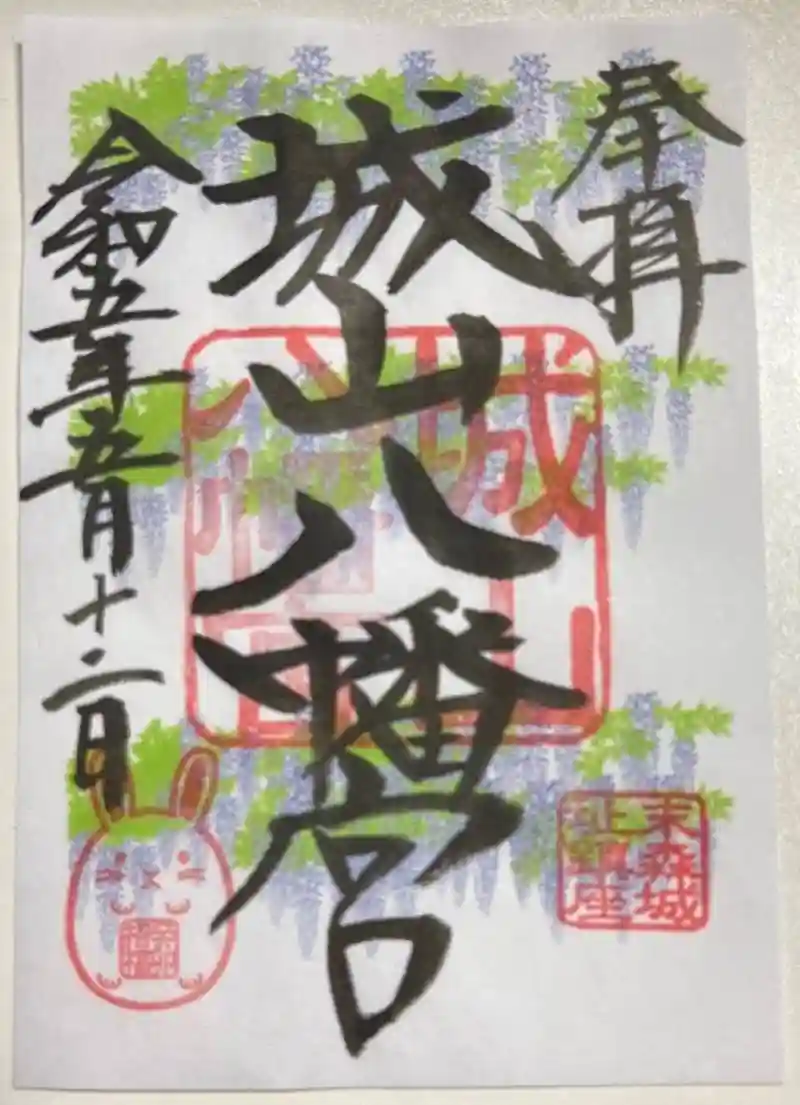 奉拝
城山八幡宮
令和五年五月十二日
末森城
址鎮座